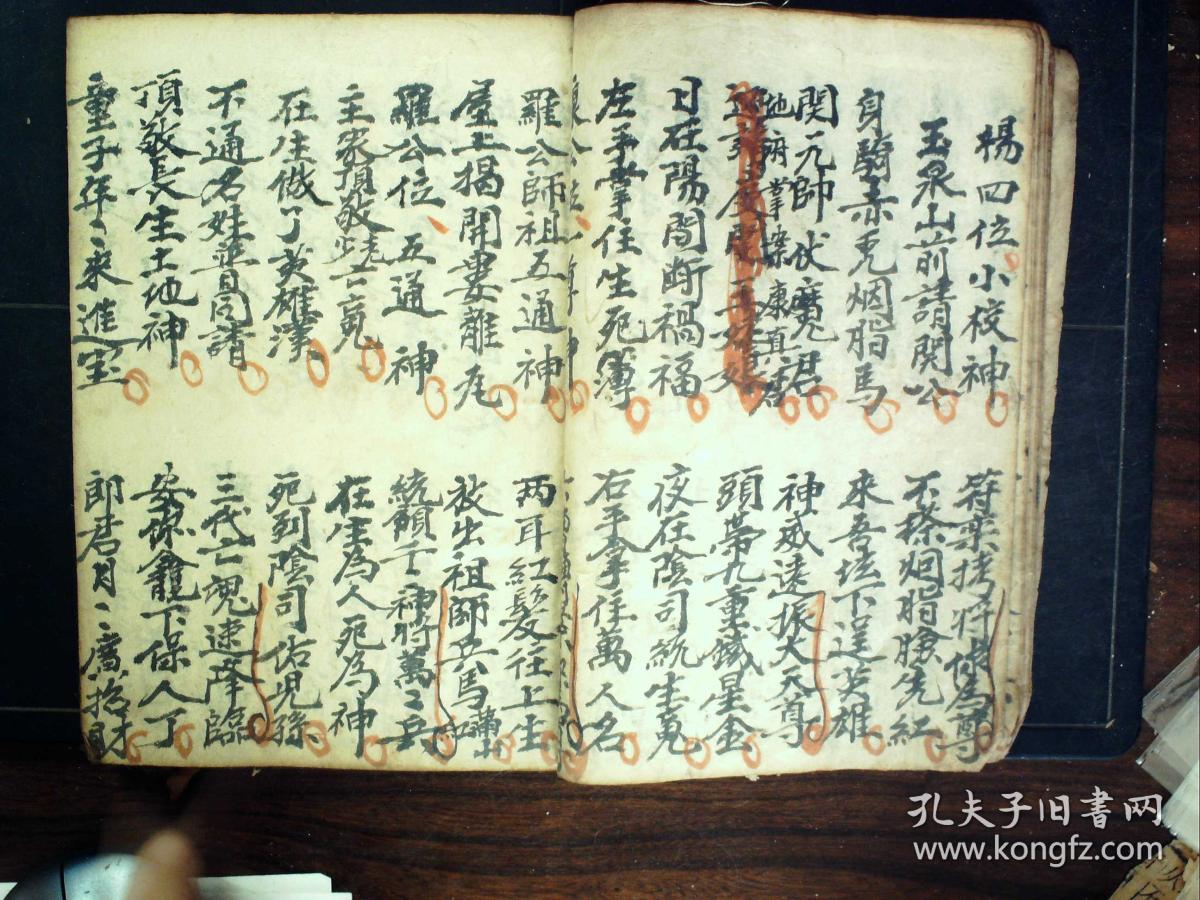 楊四位小校神
符葉拷將修為尊
玉泉山前請関公
不搽烟脂臉先紅
身騎赤兎烟脂馬
來吾坛下逞英雄
関元帥伏魔君
地府掌案康真君
神威遠振大天尊
頭帶九重鐵星金
日在陽間断禍福
夜在陰司統生鬼
左手掌住生死簿
右手拿住萬人名
羅公師祖五通神
两耳紅髪往上生
屋上揭開妻離尾
放出祖師兵馬
羅公位五通神
統領千神將萬二兵
主家頂敬
在生為人死為神
在生做了英雄漢
死到陰司佑児孫
不通名姓並同請
三代亡魂速降臨
頂敬長生土地神
安保龕下保人丁
童子年二來進宝
郎君月二廣招財
孔夫子旧书网
www.kongfz.com